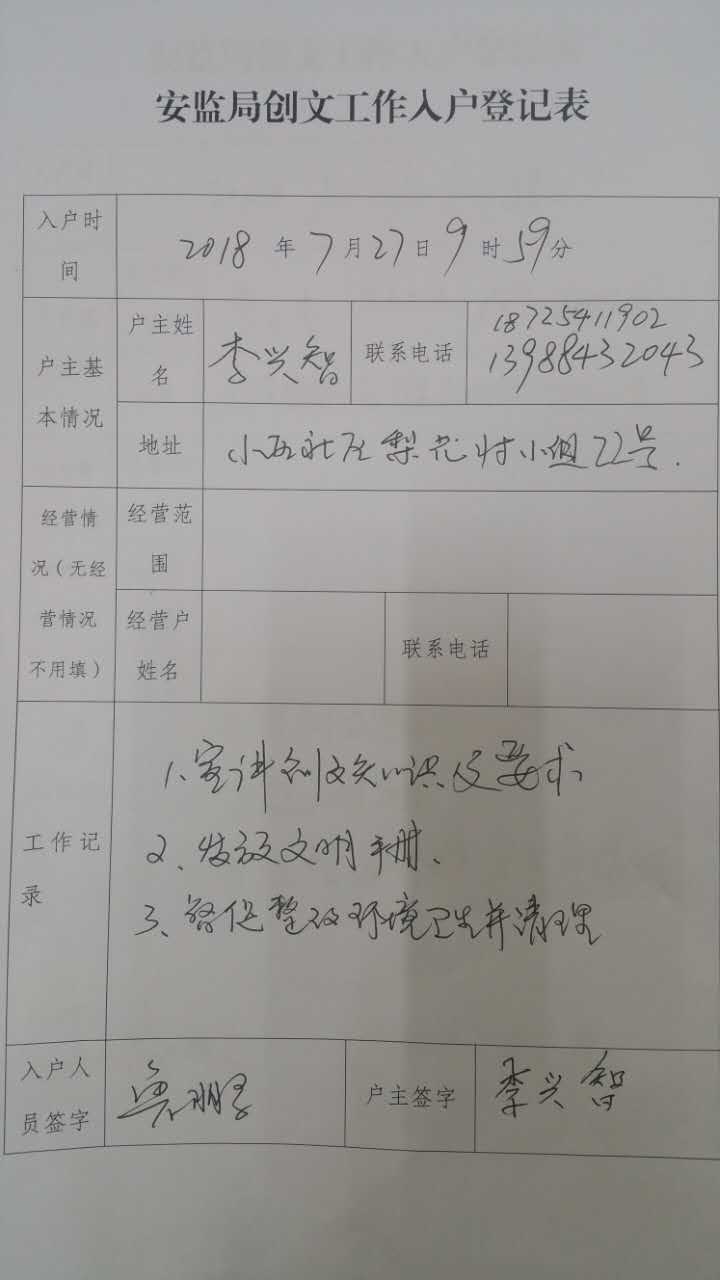 安监局创文工作入户登记表
入户时间
2018年7月27日9时59分
户主基本情况
户主姓名
李兴智
联系电话
18725411902
13988432043
地址
小石社区梨花村小组22号.
经营情况（无经营情况不用填）
经营范围
经营户姓名
联系电话
工作记录
1、宣讲创文知识及要求
2、发放文明手册、
3、督促整改环境卫生并清理
入户人员签字
户主签字
李兴智